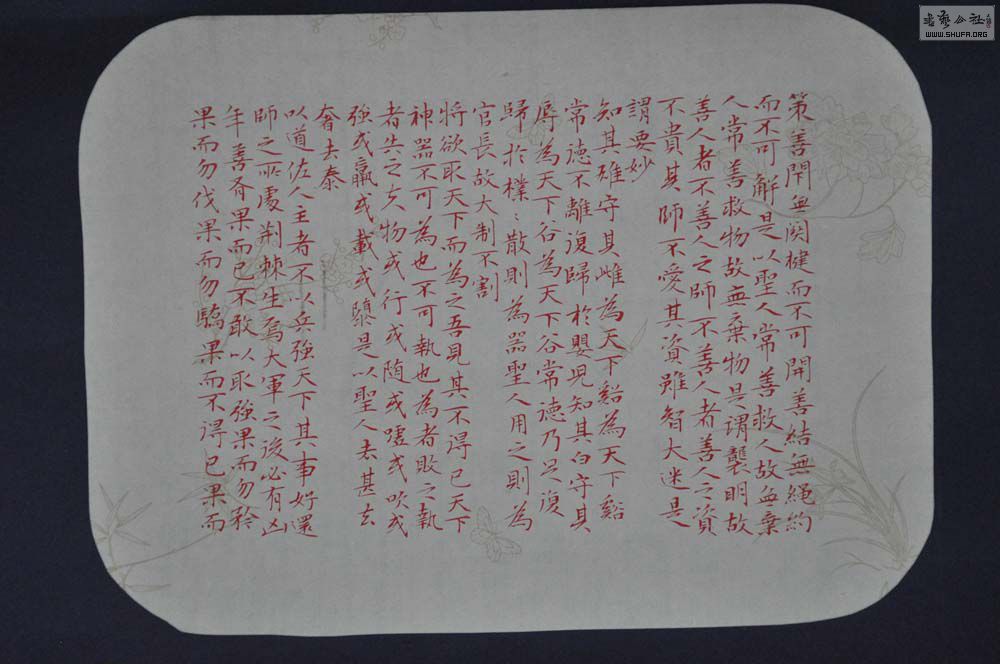 策善閇無関楗而不可開善結無繩約
而不可解是以聖人常善救人故無棄
人常善救物故無棄物是谓襲明故
善人者不善人之師不善人者善人之資
不貴其師不愛其資雖智大迷是
謂要妙
知其雄守其雌為天下谿為天下谿
常德不離復歸於嬰児知其白守其
辱為天下谷為天下谷常德乃足復
歸於樸〻散則為器聖人用之則為
官長故大制不割
將欲取天下而為之吾見其不得已天下
神器不可為也不可執也為者敗之執
者失之夫物或行或随或嘘或吹或
強或羸或載或隳是以聖人去甚去
奢去泰
以道佐人主者不以兵強天下其事好還
師之所處荆棘生焉大軍之後必有凶
年善者果而已不敢以取強果而勿矜
果而勿伐果而勿驕果而不得已果而
書藝公社
WWW.SHUFA.ORG